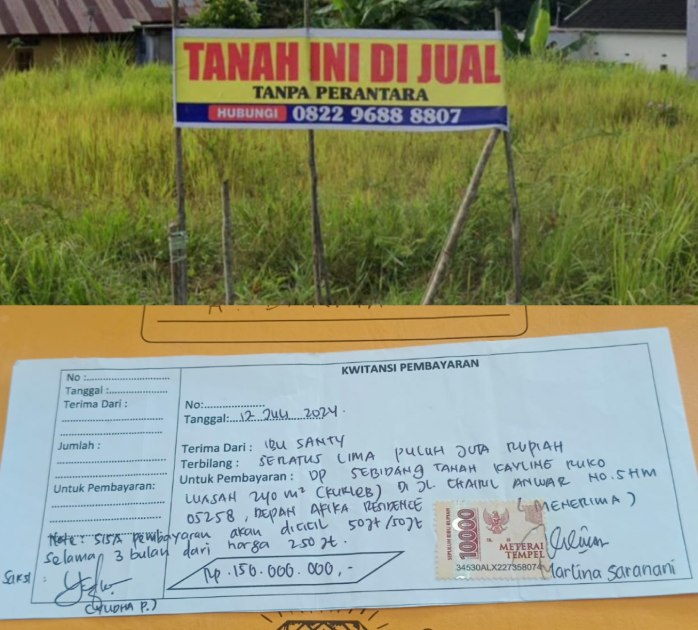 TANAH INI DI JUAL
TANPA PERANTARA
HUBUNGI 0822 9688 8807
KWITANSI PEMBAYARAN
No :
Tanggal :
Terima Dari :
Jumlah :
Untuk Pembayaran:
No:
Tanggal: 12 JULI 2024.
Terima Dari : IBU SANTY
Terbilang : SERATUS LIMA PULUH JUTA RUPIAH
Untuk Pembayaran : DP SEBIDANG TANAH KAVLING RUKO
LUASAN 240 m² (KURLEB) DI JL CHAIRIL ANWAR NO. SHM
05258, DEPAN AFIKA RESIDENCE
(MENERIMA)
Note : SISA pembayaran akan dicicil 50jt/50jt
Selama 3 bulan dari harga 250 jt.
Rp. 150.000.000,-
SEPULUH RIBU RUPIAH
10000
METERAI
TEMPEL
34530ALX227358074
Martina Saranani
Saksi :
(YUDHA P.)